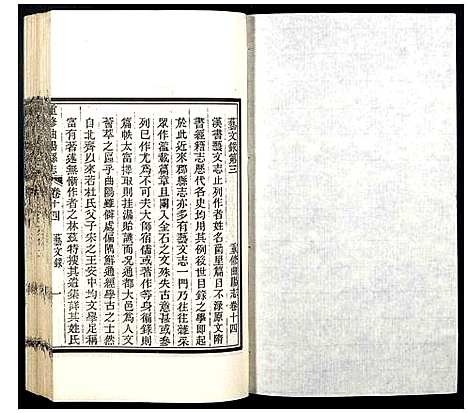 藝文錄第三　重修曲陽縣志卷十四
漢書藝文志止列作者姓名茵里篇目不淥原文隋
書經籍志歷代各史均用其例後世目錄之學即起
於此近來郡縣志亦多有藝文志一門乃往往雜采
眾作尤繁篇章且闌入公牘之文殊失古意甚或參
列已作尤為不倫夫大傷宿儒或著作等身備錄則
篇帙太富擇取則挂漏貽譏而況通都大邑為人文
薈萃之區乎曲陽雖僻處偏隅鮮通經學古之士然
自北齊以來若杜氏父子宋之王安中均文學卓卓
富有著述無慚作者之林茲特搜其遺集詳其姓氏
重修曲陽縣志　卷十四　藝文錄